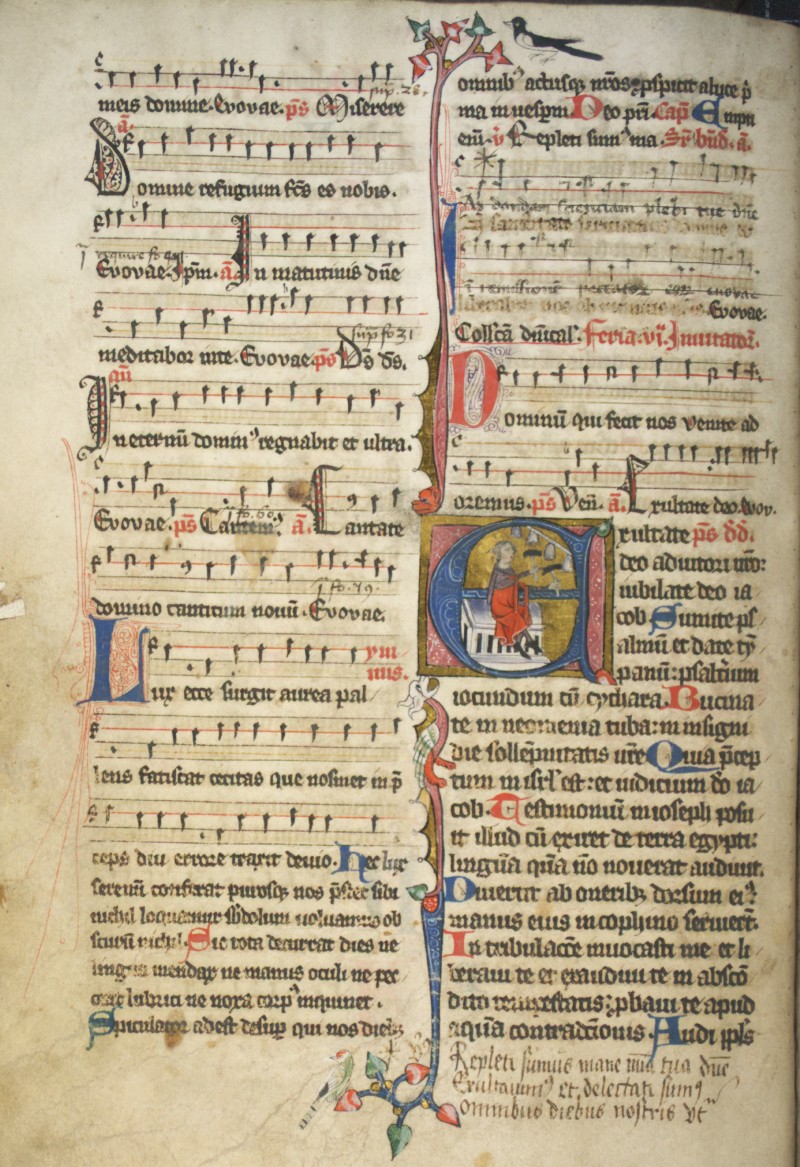 meis domine. Evovae. ps Miserere
sup. 28.
a
Domine refugium fcs es nobis.
require fo
Evovae. Ipm. a In matutinis dne
meditabor in te. Evovae. ps Ds ds.
sup fo 31
In eternu domin⁹ regnabit et ultra.
Evovae. ps Cantem⁹. a Cantate
fo. 60.
domino canticum novu. Evovae.
fo. 79.
ym
nus.
Lux ecce surgit aurea pal
lens fatiscat cecitas que nosmet in p̄
ceps diu errore traxit devio. Hec lux
serenu conferat purosq; nos prestet sibi
nichil loquamur subdolum voluamus ob
scuru nichil. Sic tota decurrat dies ne
lingua mendax ne manus oculi ne pec
cent lubrici ne noxa corp⁹ inquinet.
Speculator adest desup qui nos dieb;
omnib⁹ actusq; nros pspicit a luce p̄
ma in vesperu Deo pri. Cap̄ Empti
estis. v̄ Repleti sum⁹ ma. Sr bnd. a.
plebi tue dne
Evovae.
Collcā dnical. Feria. vi. Invitator.
Dominu qui fecit nos venite ad
oremus. ps Ven. a. Exultate deo. Evov.
Exultate ps dd.
deo adiutori nro:
iubilate deo ia
cob Sumite ps
almu et date ty
panu: psalterium
iocundum cu cythara. Bucina
te in neomenia tuba: in insigni
die sollēpnitatis vre Quia p̄cep
tum in isrl est: et iudicium do ia
cob. Testimoniu in ioseph posu
it illud cu exiret de terra egypti:
linguā quā no noverat audivit.
Divertit ab oneribz dorsum ei⁹:
manus eius in cophino servierut.
In tribulacōe invocasti me et li
beravi te et exaudivi te in abscō
dito tempestatis: pbavi te apud
aquā contradcōonis. Audi ppls
Repleti sumus mane mīa tua dne
Exultavim⁹ et delectati sum⁹
omnibus diebus nostris